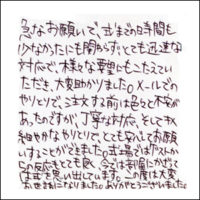 急なお願いで、式までの時間も
少なかったにも関わらず、とても迅速な
対応で、様々な要望にもこたえてい
ただき、大変助かりました。メールでの
やりとりで、注文する前は色々と不安が
あったのですが、丁寧な対応、そしてきめ
細やかなやりとりで、とても安心してお願
いすることができました。式場ではゲストから
の反応もとても良く、今では部屋にかざって
は式を思い出しています。この度は大変
お世話になりました。ありがとうございました。